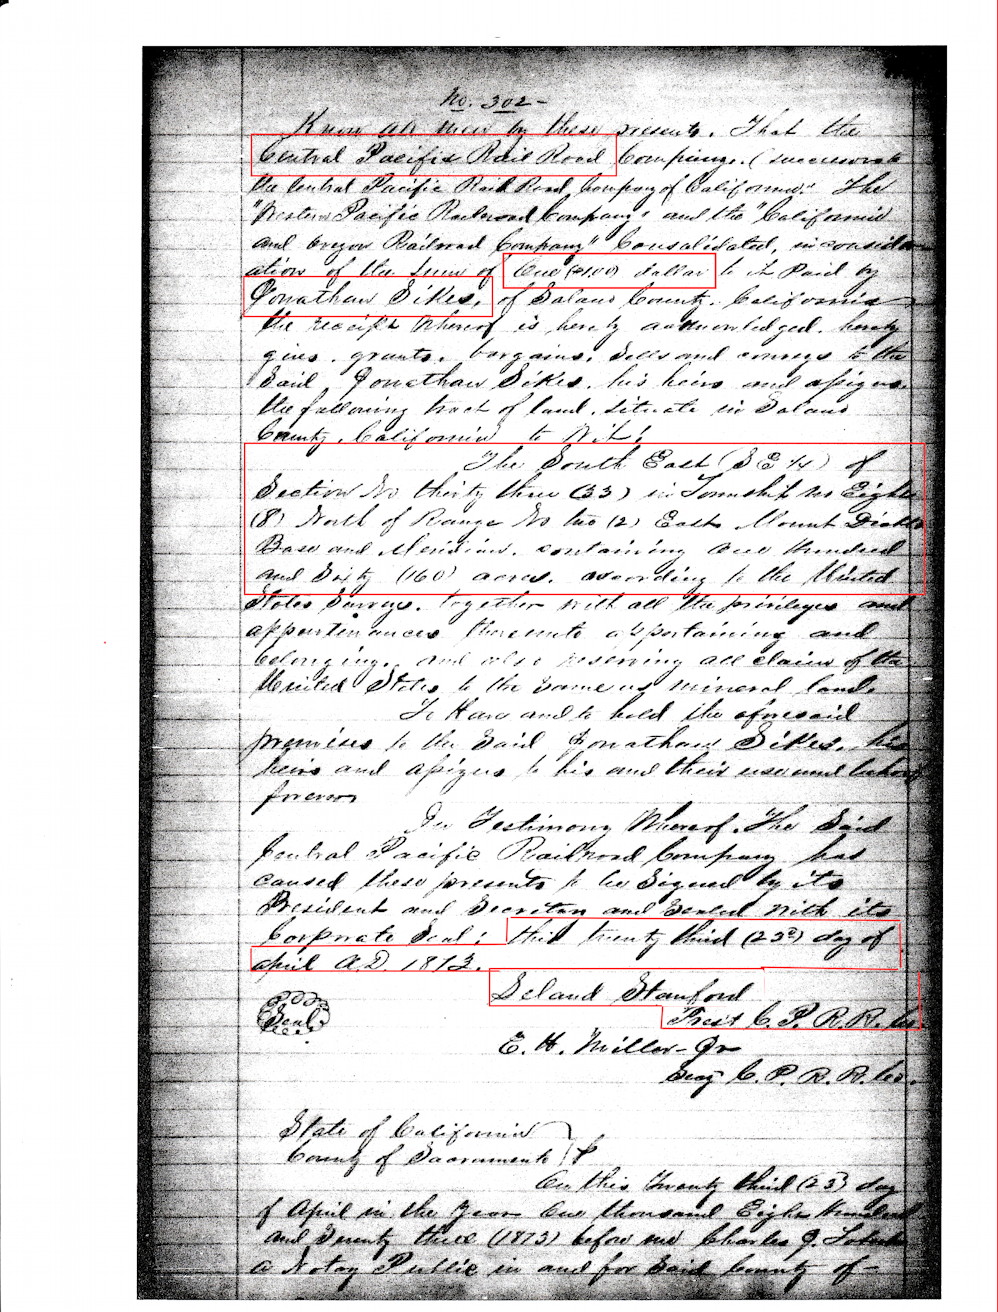 No. 302 -
Know all men by these presents. That the
Central Pacific Rail Road Company. (successor to
the Central Pacific Rail Road Company of California." The
"Western Pacific Railroad Company" and the "California
and Oregon Railroad Company" Consolidated, in consider-
ation of the sum of One ($1.00) dollar to it Paid by
Jonathan Sikes, of Solano County. California
the receipt whereof is hereby acknowledged. hereby
gives. grants. bargains. Sells and conveys to the
Said Jonathan Sikes. his heirs and assigns.
the following tract of land. situate in Solano
County. California to Wit:
The South East (S E ¼) of
Section No thirty three (33) in Township No Eight
(8) North of Range No two (2) East Mount Diablo
Base and Meridian. containing one hundred
and Sixty (160) acres. according to the United
States Survey. together with all the privileges and
appurtenances thereunto appertaining and
belonging. and also reserving all claim of the
United States to the same as mineral land.
To Have and to hold the aforesaid
premises to the Said Jonathan Sikes. his
heirs and assigns to his and their use and behoof
forever
In Testimony Whereof. The Said
Central Pacific Railroad Company has
caused these presents to be Signed by its
President and Secretary and Sealed with its
Corporate Seal; this twenty third (23d) day of
April A.D. 1873.
Leland Stanford
Prest C. P. R. R. Co.
Seal
E. H. Miller - Jr
Secy C. P. R. R. Co.
State of California
County of Sacramento
On this Twenty third (23) day
of April in the Year One thousand Eight Hundred
and Seventy three (1873) before me Charles J.
a Notary Public in and for Said County of -